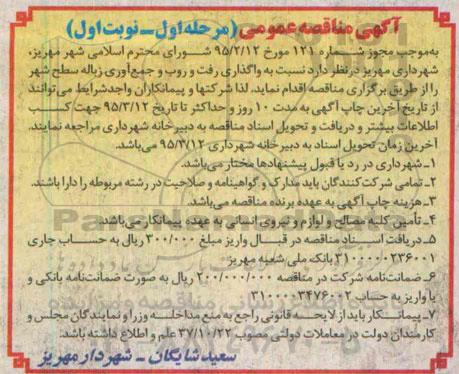 آگهی مناقصه عمومی (مرحله اول ـ نوبت اول)
به‌موجب مجوز شماره ۱۲۱ مورخ ۹۵/۲/۱۲ شورای محترم اسلامی شهر مهریز،
شهرداری مهریز در نظر دارد نسبت به واگذاری رفت و روب و جمع‌آوری زباله سطح شهر
را از طریق برگزاری مناقصه اقدام نماید. لذا شرکتها و پیمانکاران واجدشرایط می‌توانند
از تاریخ آخرین چاپ آگهی به مدت ۱۰ روز و حداکثر تا تاریخ ۹۵/۳/۱۲ جهت کسب
اطلاعات بیشتر و دریافت و تحویل اسناد مناقصه به دبیرخانه شهرداری مراجعه نمایند.
آخرین زمان تحویل اسناد به دبیرخانه شهرداری ۹۵/۳/۱۲ می‌باشد.
۱ـ شهرداری در رد یا قبول پیشنهادها مختار می‌باشد.
۲ـ تمامی شرکت‌کنندگان باید مدارک و گواهینامه و صلاحیت در رشته مربوطه را دارا باشند.
۳ـ هزینه چاپ آگهی به عهده برنده مناقصه می‌باشد.
۴ـ تأمین کلیه مصالح و لوازم و نیروی انسانی به عهده پیمانکار می‌باشد.
۵ـ دریافت اسناد مناقصه در قبال واریز مبلغ ۳۰۰/۰۰۰ ریال به حساب جاری
۳۱۰۰۰۰۰۲۳۶۰۰۱ بانک ملی شعبه مهریز
۶ـ ضمانت‌نامه شرکت در مناقصه ۲۰۰/۰۰۰/۰۰۰ ریال به صورت ضمانت‌نامه بانکی و
یا واریز به حساب ۳۱۰۰۰۰۳۴۷۶۰۰۲
۷ـ پیمانکار باید از لایحه قانونی راجع به منع مداخله وزرا و نمایندگان مجلس و
کارمندان دولت در معاملات دولتی مصوب ۳۷/۱۰/۲۲ علم و اطلاع داشته باشد.
سعید شایگان ـ شهردار مهریز